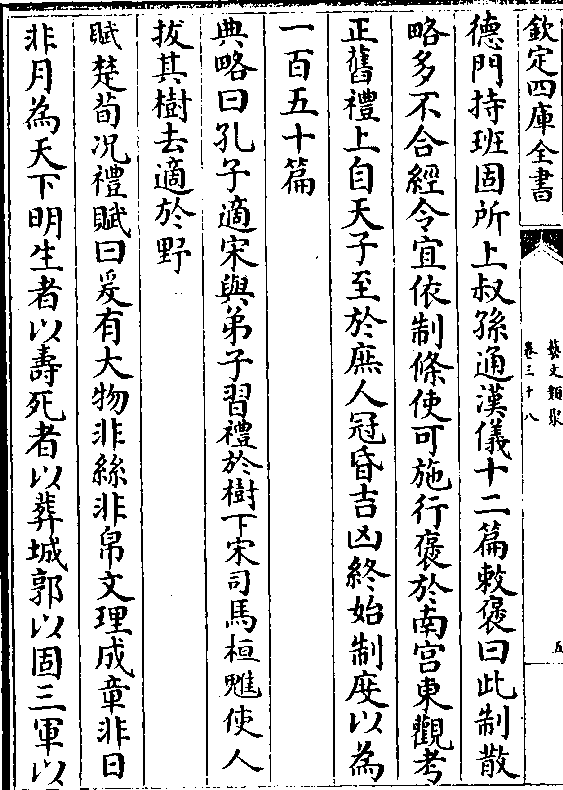 欽定四庫全書
藝文類聚
卷三十八
五
德門持班固所上叔孫通漢儀十二篇敕褒曰此制散
略多不合經今宜依制條使可施行褒於南宫東觀考
正舊禮上自天子至於庶人冠昏吉凶終始制度以為
一百五十篇
典略曰孔子適宋與弟子習禮於樹下宋司馬桓魋使人
拔其樹去適於野
賦楚荀况禮賦曰爰有大物非絲非帛文理成章非日
非月為天下明生者以壽死者以葬城郭以固三軍以